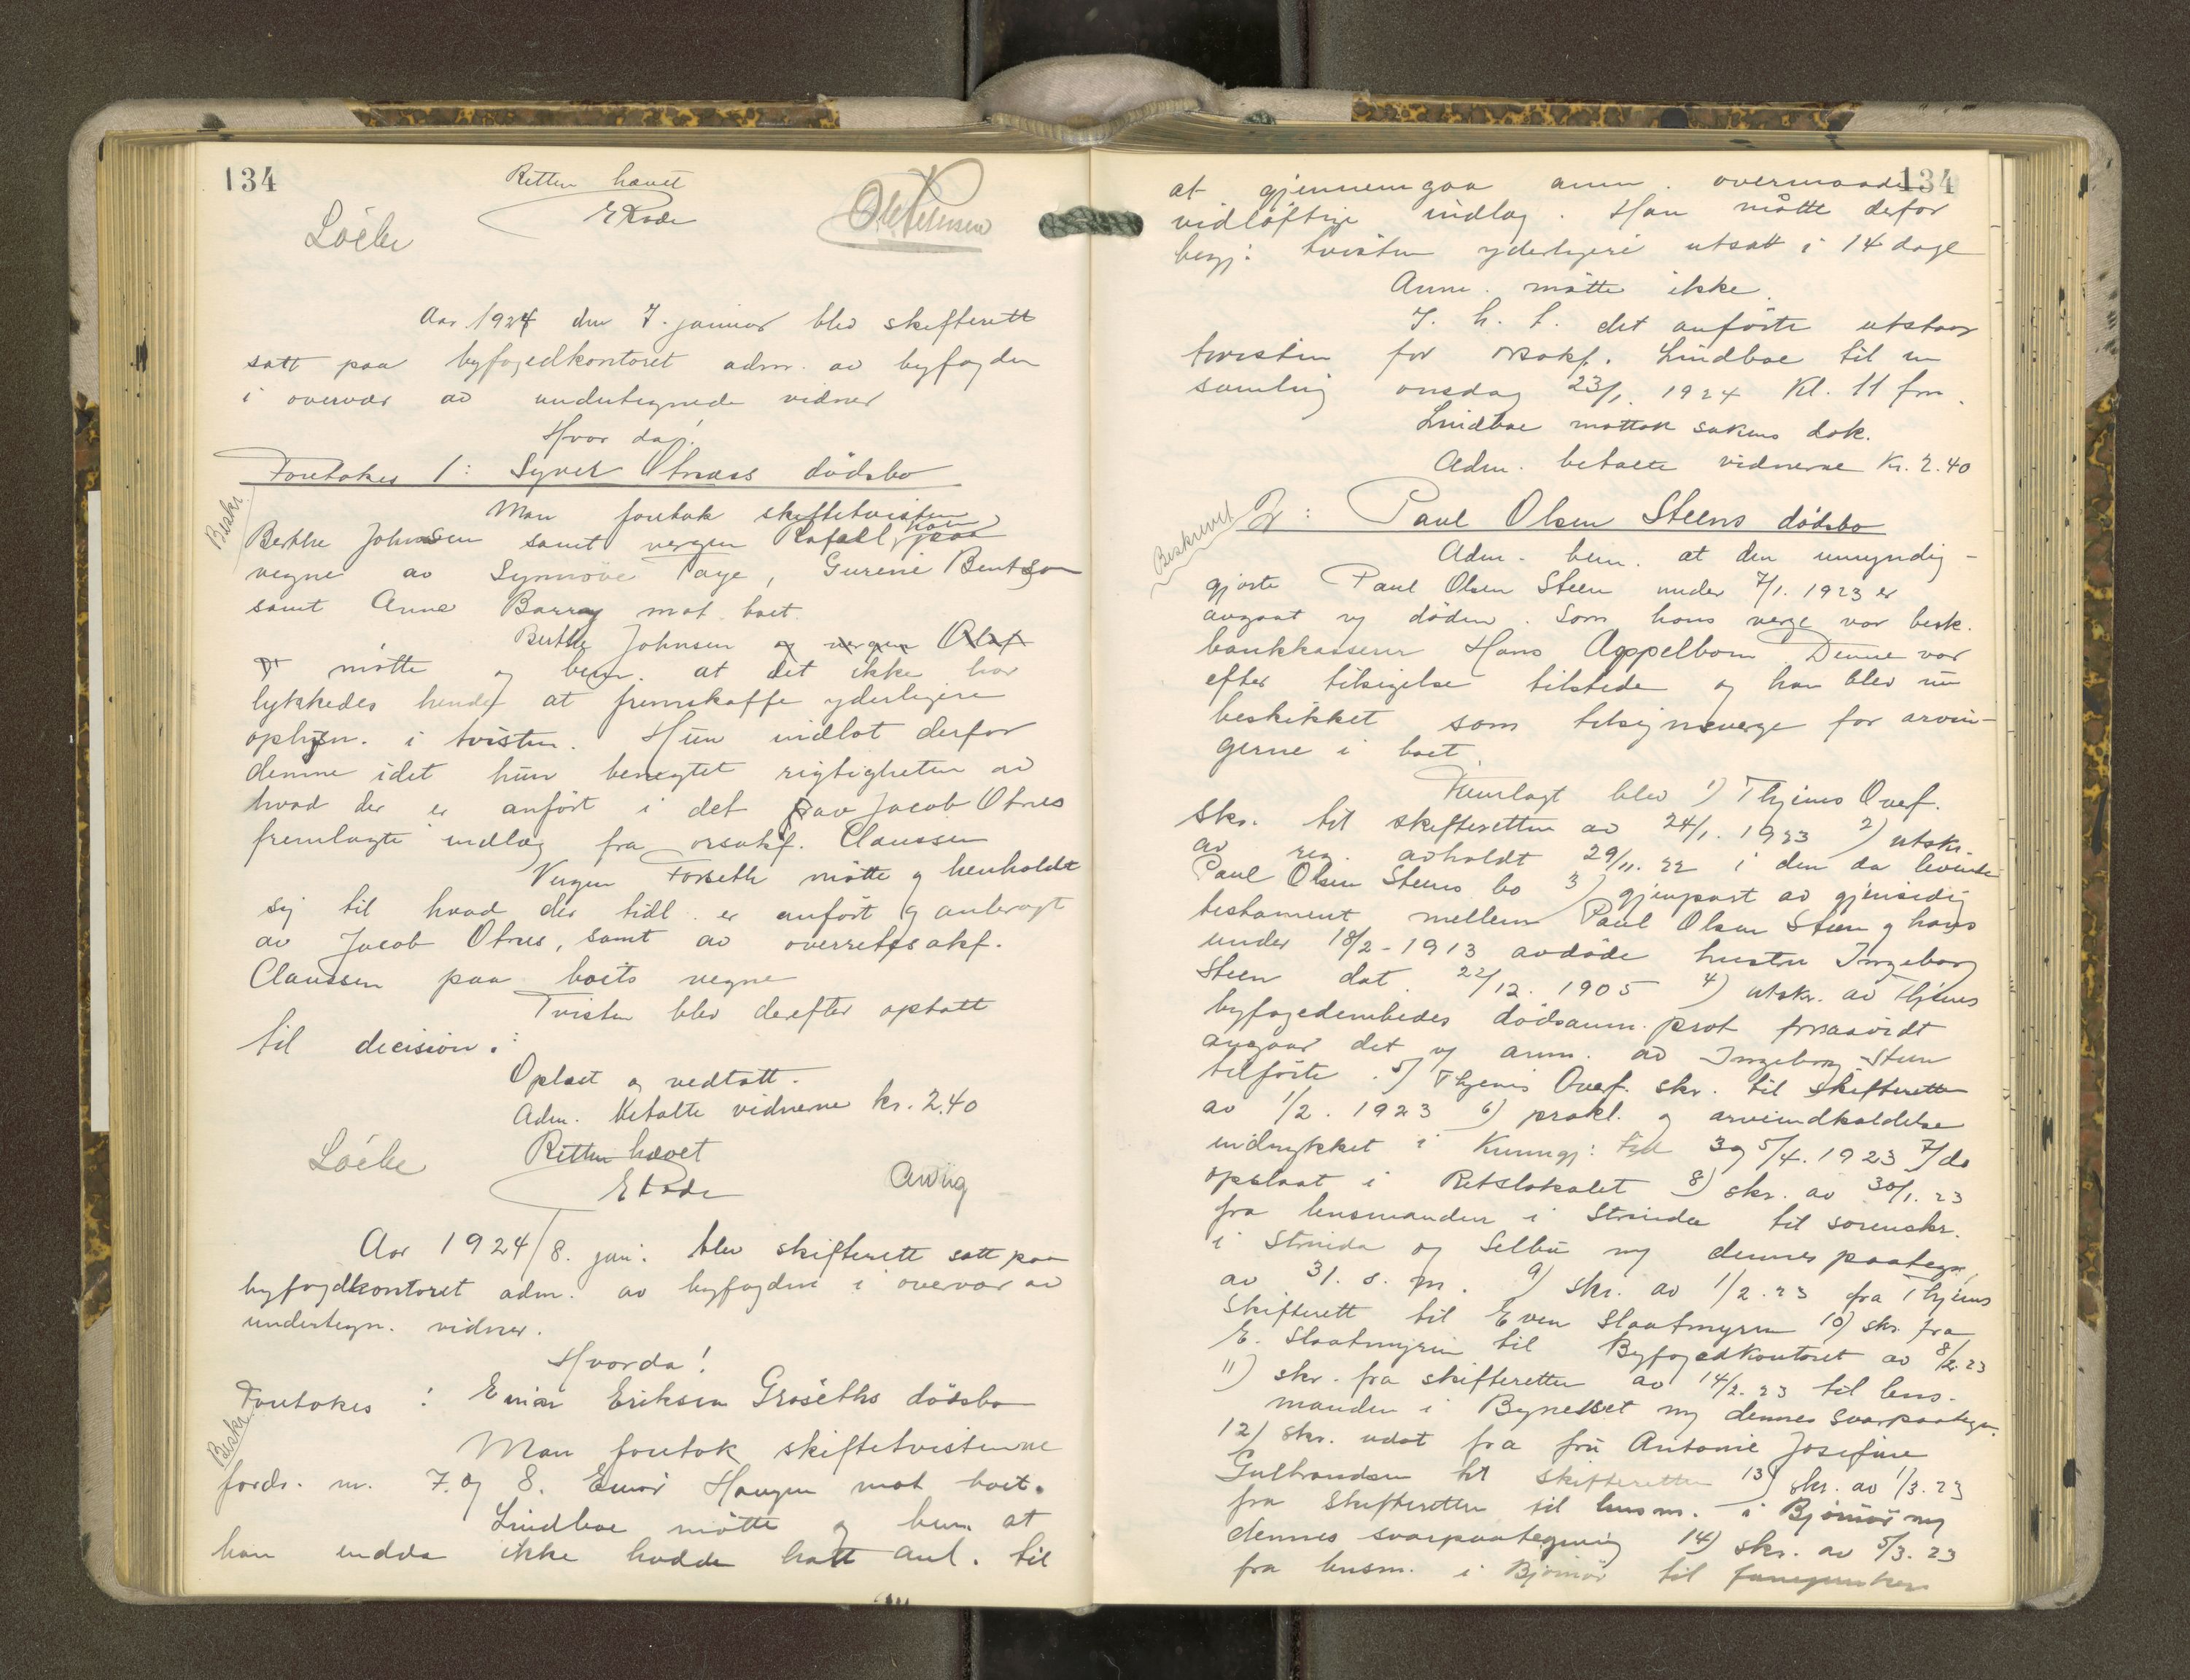 134
Retten hævet
Løche
Aar 1924 den 7. januar blev skifterett
satt paa byfogedkontoret adm. av byfogden
i overvær av undertegnede vidner
Hvor da!
Foretokes 1: Syver Otness dödsbo
Beskr.
Man foretok skiftetvisten
Berthe Johnsen samt vergen Rafael paa
vegne av Synnöve Paye, Gurine Bentson
samt Anna Barray mot boet.
Berthe Johnsen og vergen Olaf
møtte og bem. at det ikke har
lykkedes hende at fremskaffe yderligere
oplysn. i tvisten. Hun indlot derfor
denne idet hun benegtet rigtigheten av
hvad der er anført i det av Jacob Otnes
fremlagte indlæg fra orsakf. Claussen
Vergen Forseth møtte og henholdt
sig til hvad der tidl. er anført og anbragt
av Jacob Otnes, samt av overretssakf.
Claussen paa boets vegne
Tvisten blev derefter optatt
til decision.
Oplæst og vedtatt.
Adm. betalte vidnerne kr. 2.40
Løche
Retten hævet
Aar 1924 / 8. jan. blev skifterett satt paa
byfogdkontoret adm. av byfogden i overvær av
undertegn. vidner.
Hvorda!
Foretokes : Einar Eriksen Grøseths dødsbo
Beskr.
Man foretok skiftetvistenne
fordr. nr. 7. og 8. Einar Haugen mot boet.
Lindboe møtte og bem. at
han endda ikke hadde hatt anl. til
134
at gjennemgaa anm. overmaade
vidløftige indlæg. Han måtte derfor
begj: tvisten yderligere utsatt i 14 dage
Anm. møtte ikke.
I. h. t. det anførte utstaar
tvisten for orsakf. Lindboe til en
samling onsdag 23/1. 1924 Kl. 11 fm.
Lindboe mottok sakens dok.
Adm. betalte vidnerne Kr. 2.40
Beskrevet
2: Paul Olsen Steens dødsbo
Adm. bem. at den umyndig-
gjorte Paul Olsen Steen under 7/1. 1923 er
avgaat ved døden. Som hans verge var besk.
bankkasserer Hans Appelbom Denne var
efter tilsigelse tilstede og han blev nu
beskikket som tilsynsverge for arvin-
gerne i boet.
Fremlagt blev 1) Thjems Overf.
skr. til skifteretten av 24/1. 1923 2) utskr.
av reg. avholdt 29/11. 22 i den da levende
Paul Olsen Steens bo 3) gjenpart av gjensidig
testament mellem Paul Olsen Steen og hans
under 18/2 - 1913 avdøde hustru Ingeborg
Steen dat. 22/12. 1905 4) utskr. av Thjems
byfogedembedes dødsanm. prot forsaavidt
angaar det ved anm. av Ingeborg Steen
tilførte. 5) Thjems Overf. skr. til skifteretten
av 1/2. 1923 6) prokl. og arveindkaldelse
indrykket i Kunngj: tid 3 og 5/4. 1923 7) do
opslaat i Retslokalet 8) skr. av 30/1. 23
fra lensmanden i Strinda til sorenskr.
i Strinda og Selbu m/ dennes paategn.
av 31. s. m. 9) skr. av 1/2. 23 fra Thjems
Skifterett til Even Slaatmyren 10) skr. fra
E. Slaatmyren til Byfogedkontoret av 8/2. 23
11) skr. fra skifteretten av 14/2. 23 til lens-
manden i Bynesset m/ dennes svarpaategn.
12) skr. udat fra fru Antonie Josefine
Gulbrandsen til skifteretten 13) skr. av 1/3. 23
fra Skifteretten til lensm. i Bjørnør m/
dennes svarpaategning 14) skr. av 5/3. 23
fra lensm. i Bjørnør til